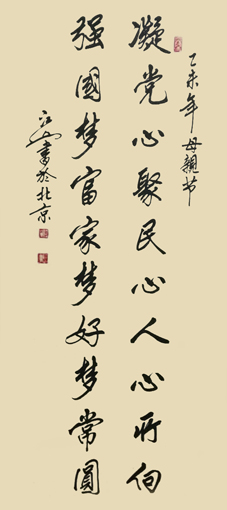 乙未年母親节
凝党心聚民心人心所向
强國梦富家梦好梦常圆
江山書於北京